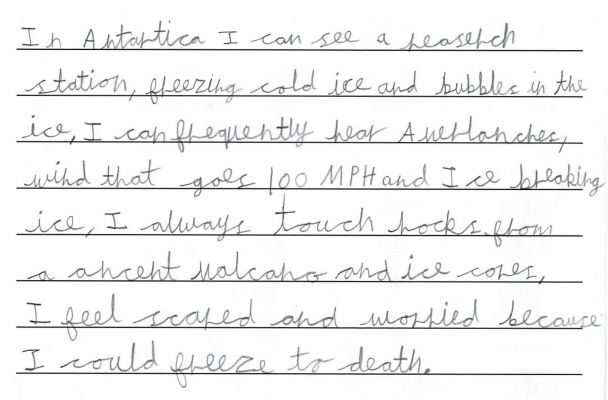 In Antartica I can see a reaserch
station, freezing cold ice and bubbles in the
ice, I can frequently hear Averlanches,
wind that goes 100 MPH and Ice breaking
ice, I always touch rocks.from
a ancent valcano and ice cores,
I feel scared and worried because
I could freeze to death.